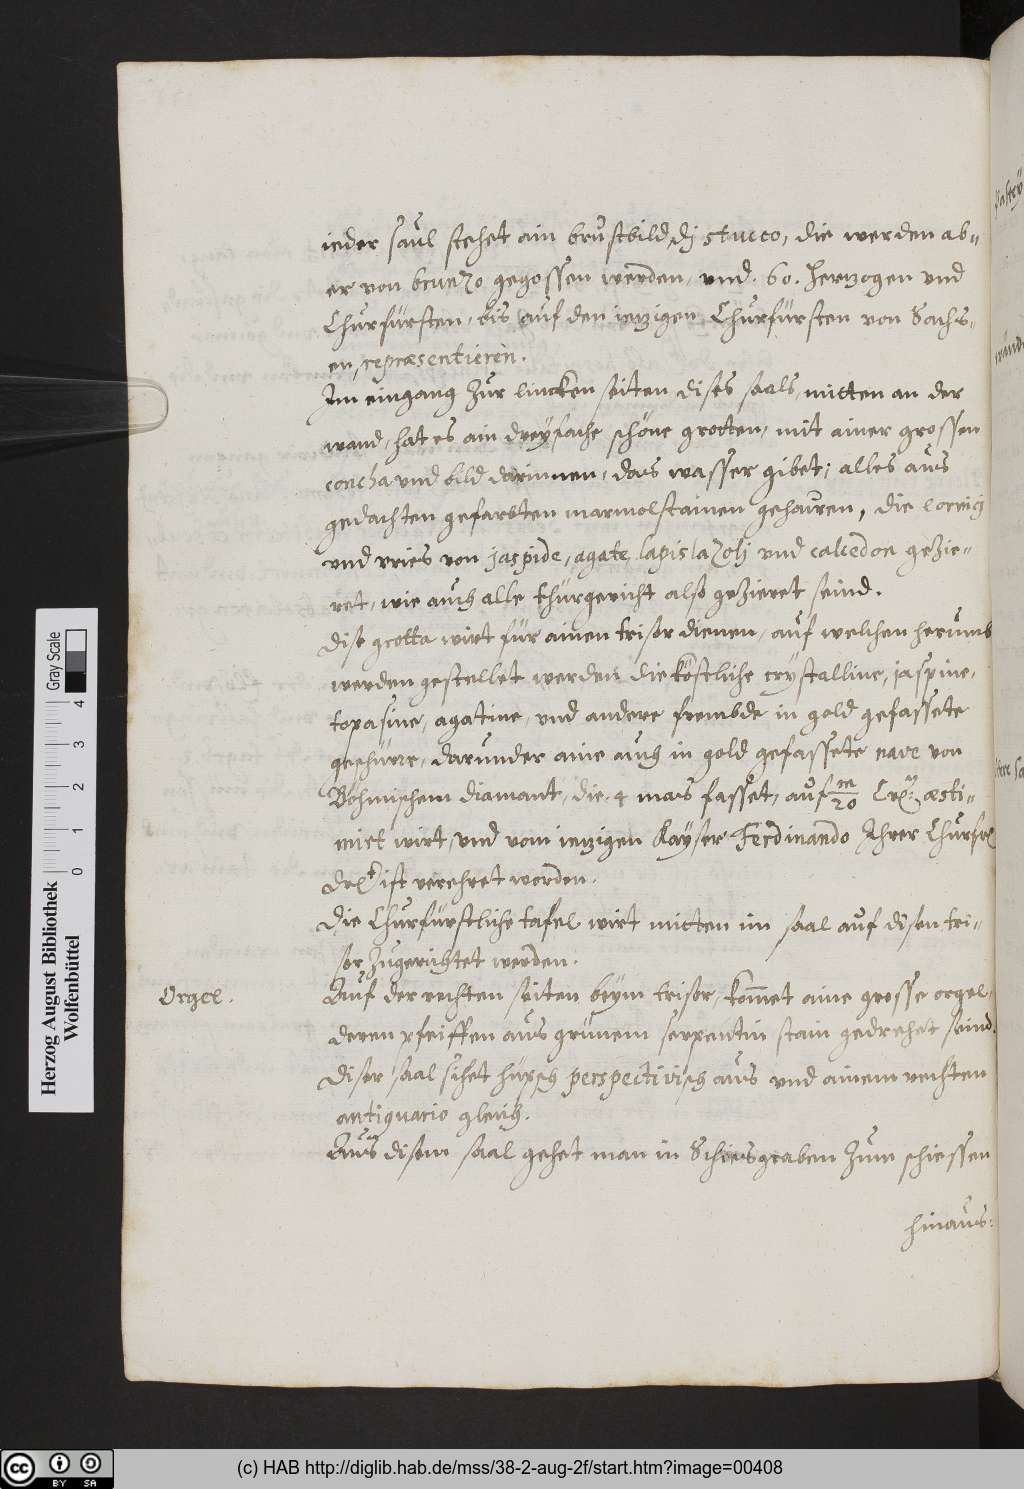 ieder saul stehet ain brustbild, dj stucco, die werden ab-
er von brunzo gegossen werden, und. 60. Hertzogen und
Churfürsten, bis auf den ietzigen Churfürsten von Sachs-
en, repræsentieren.
Im eingang zur lincken seiten dises saals, mitten an der
wand, hat es ain dreyfache schöne grotten, mit ainer grossen
concha und bild darinnen, das wasser gibet; alles aus
gedachten gefarbten marmolstainen gehauen, die cornig
und vries von jaspide, agate, lapis lazolj und calcedon gezie-
ret, wie auch alle thürgericht also gezieret seind.
Dise grotta wirt für ainen trisor dienen, auf welchen herumb
werden gestellet werden die köstliche crystalline, jaspine,
topasine, agatine, und andere frembde in gold gefassete
geschürre, darunder aine auch in gold gefassete nave von
Böhmischem diamant, die. 4 mas fasset, auf m/20 Cr: æsti-
mirt wirt, und vom ietzigen Kayser Ferdinando Ihrer Churfr
Drt ist verehret worden.
Die Churfürstliche tafel wirt mitten im saal auf disen tri-
sor zugerichtet werden.
Orgel.
Auf der rechten seiten beym trisor, kom̃et aine grosse orgel,
deren pfeiffen aus grünem serpentin stain gedrehet seind.
Diser saal sihet hüpsch perspectivisch aus und ainem rechten
antiquario gleich.
Aus disem saal gehet man in Schiesgraben zum schiessen
hinaus:
Herzog August Bibliothek
Wolfenbüttel
Gray Scale
0 1 2 3 4
cc BY SA
(c) HAB http://diglib.hab.de/mss/38-2-aug-2f/start.htm?image=00408